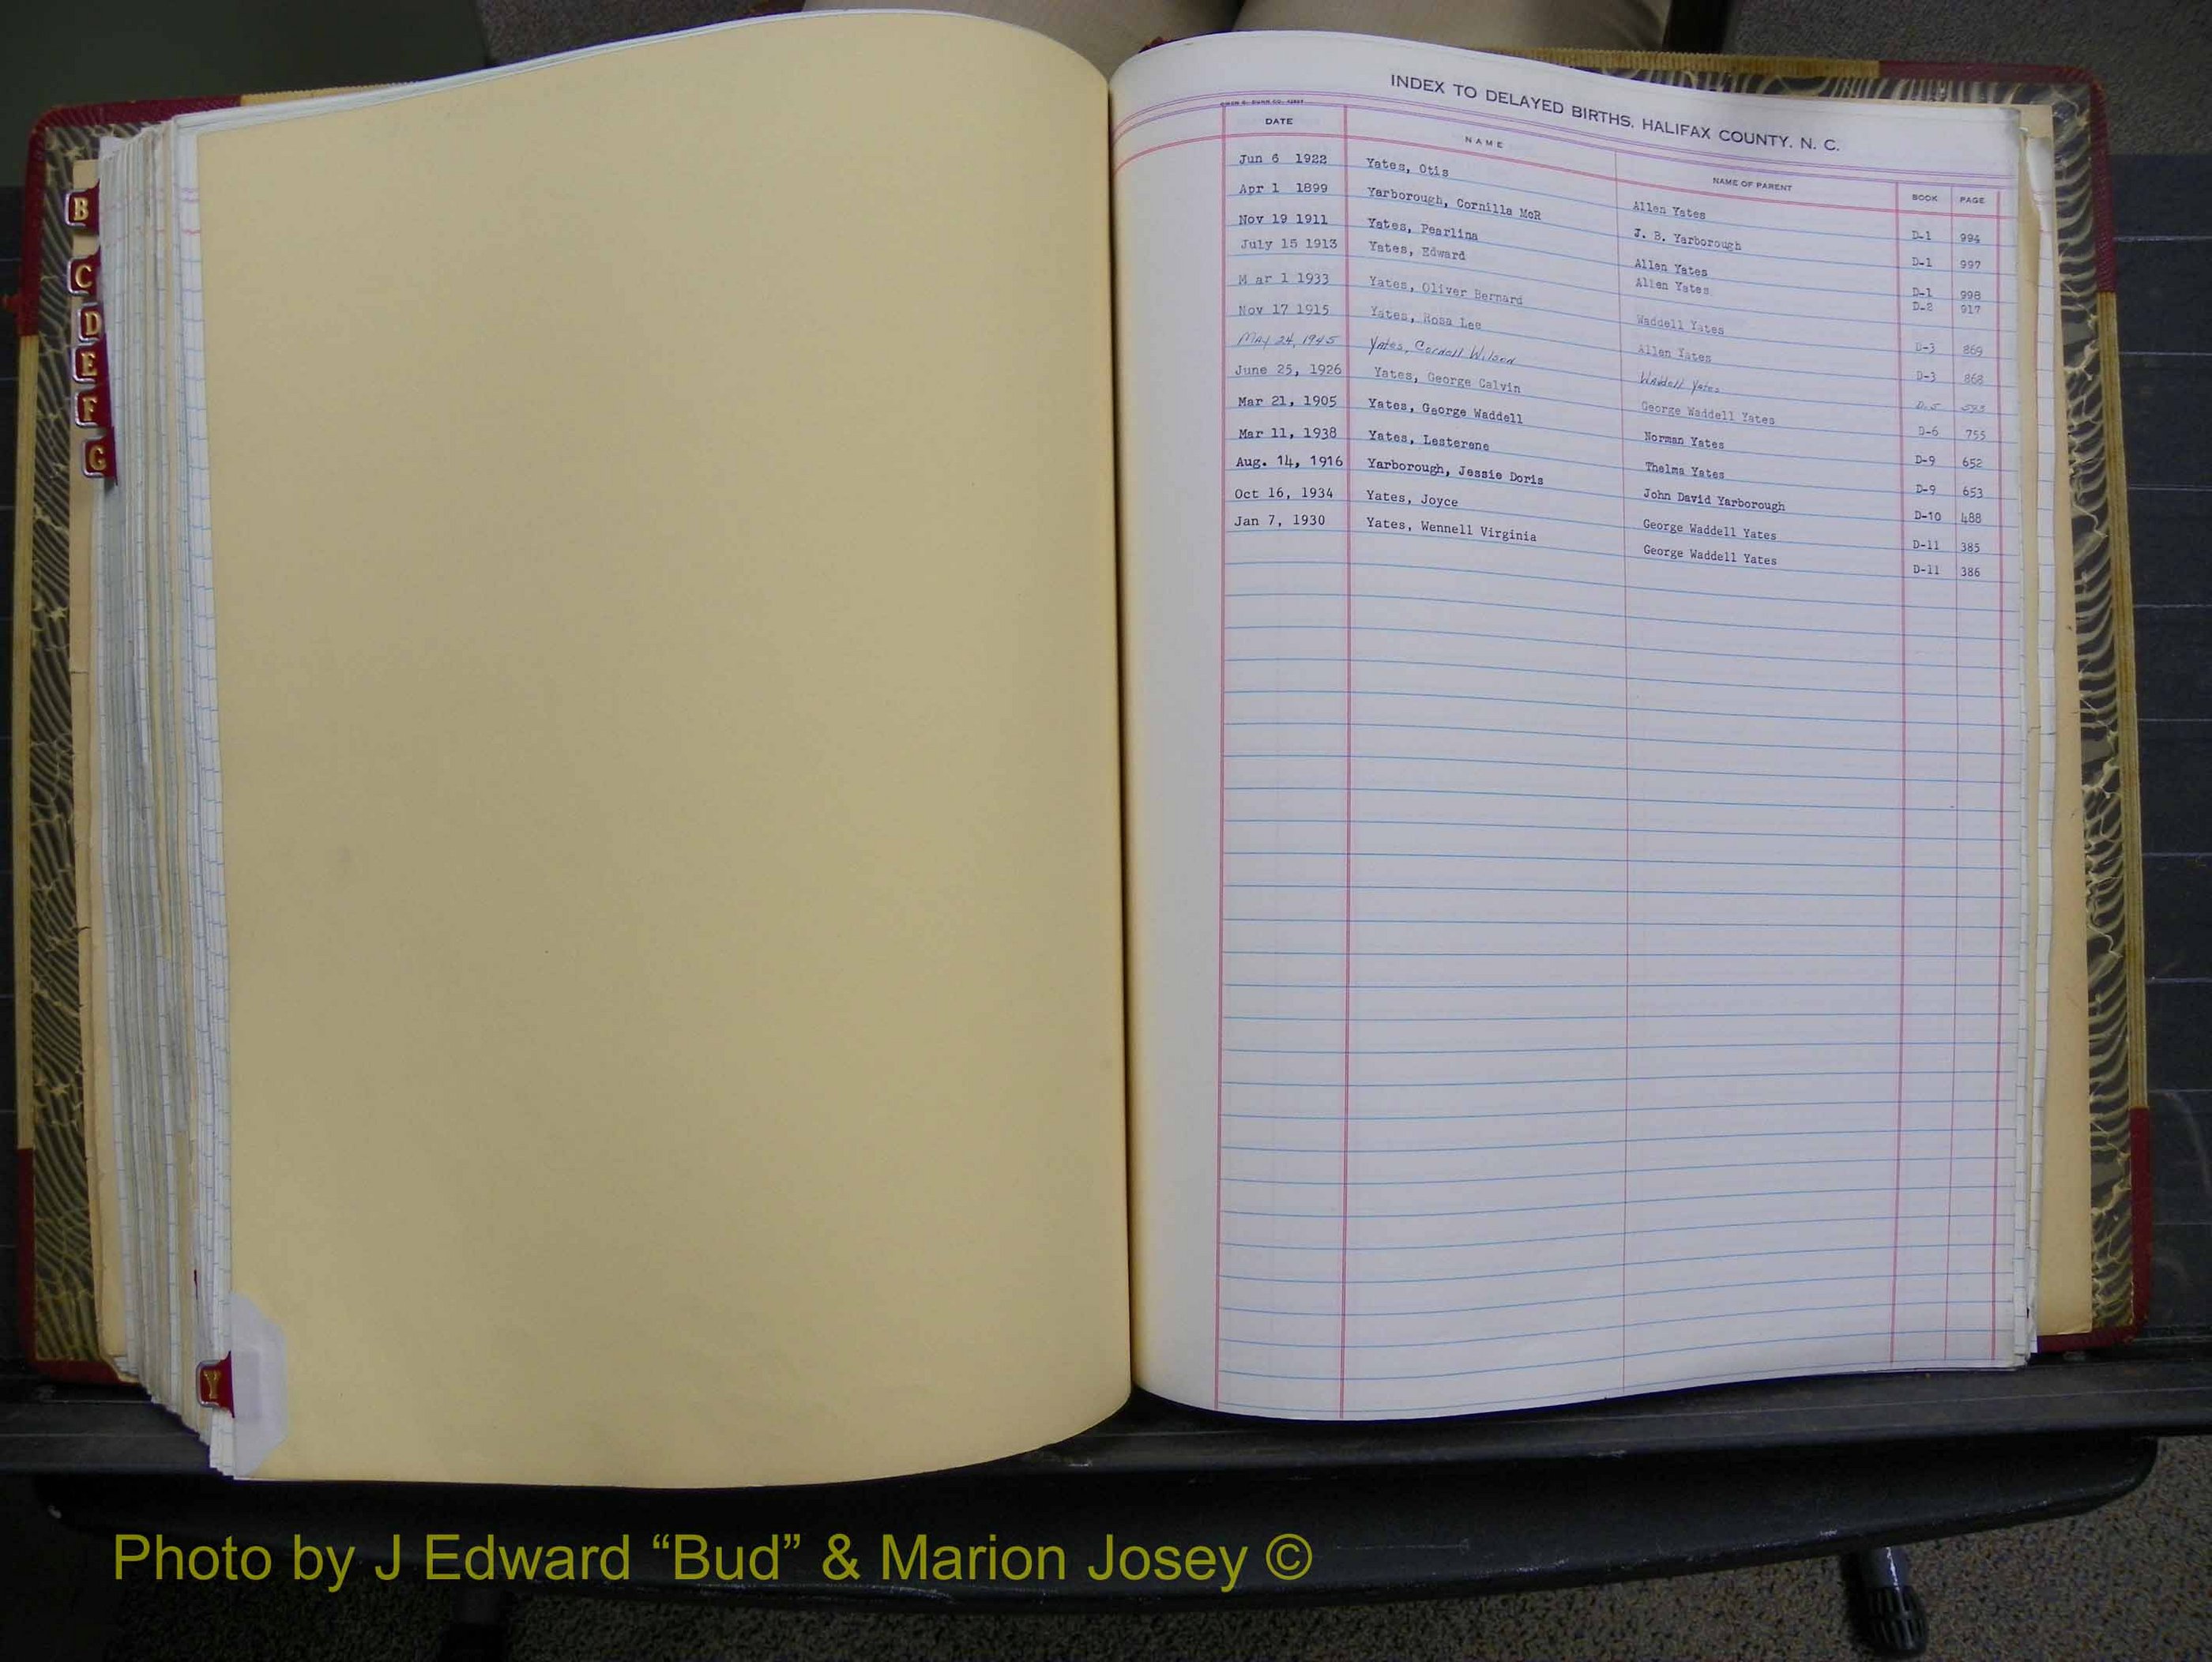 INDEX TO DELAYED BIRTHS, HALIFAX COUNTY, N. C.
OWEN G. DUNN CO.
DATE NAME NAME OF PARENT BOOK PAGE
Jun 6 1922 Yates, Otis Allen Yates D-1 994
Apr 1 1899 Yarborough, Cornilla McR J. B. Yarborough D-1 997
Nov 19 1911 Yates, Pearlina Allen Yates D-1 998
July 15 1913 Yates, Edward Allen Yates D-2 917
M ar 1 1933 Yates, Oliver Bernard Waddell Yates D-3 869
Nov 17 1915 Yates, Rosa Lee Allen Yates D-3 868
May 24, 1945 Yates, Cordell Wilson Waddell Yates D-5
June 25, 1926 Yates, George Calvin George Waddell Yates D-6 755
Mar 21, 1905 Yates, George Waddell Norman Yates D-9 652
Mar 11, 1938 Yates, Lesterene Thelma Yates D-9 653
Aug. 14, 1916 Yarborough, Jessie Doris John David Yarborough D-10 488
Oct 16, 1934 Yates, Joyce George Waddell Yates D-11 385
Jan 7, 1930 Yates, Wennell Virginia George Waddell Yates D-11 386
B
C
D
E
F
G
Y
Photo by J Edward “Bud” & Marion Josey ©